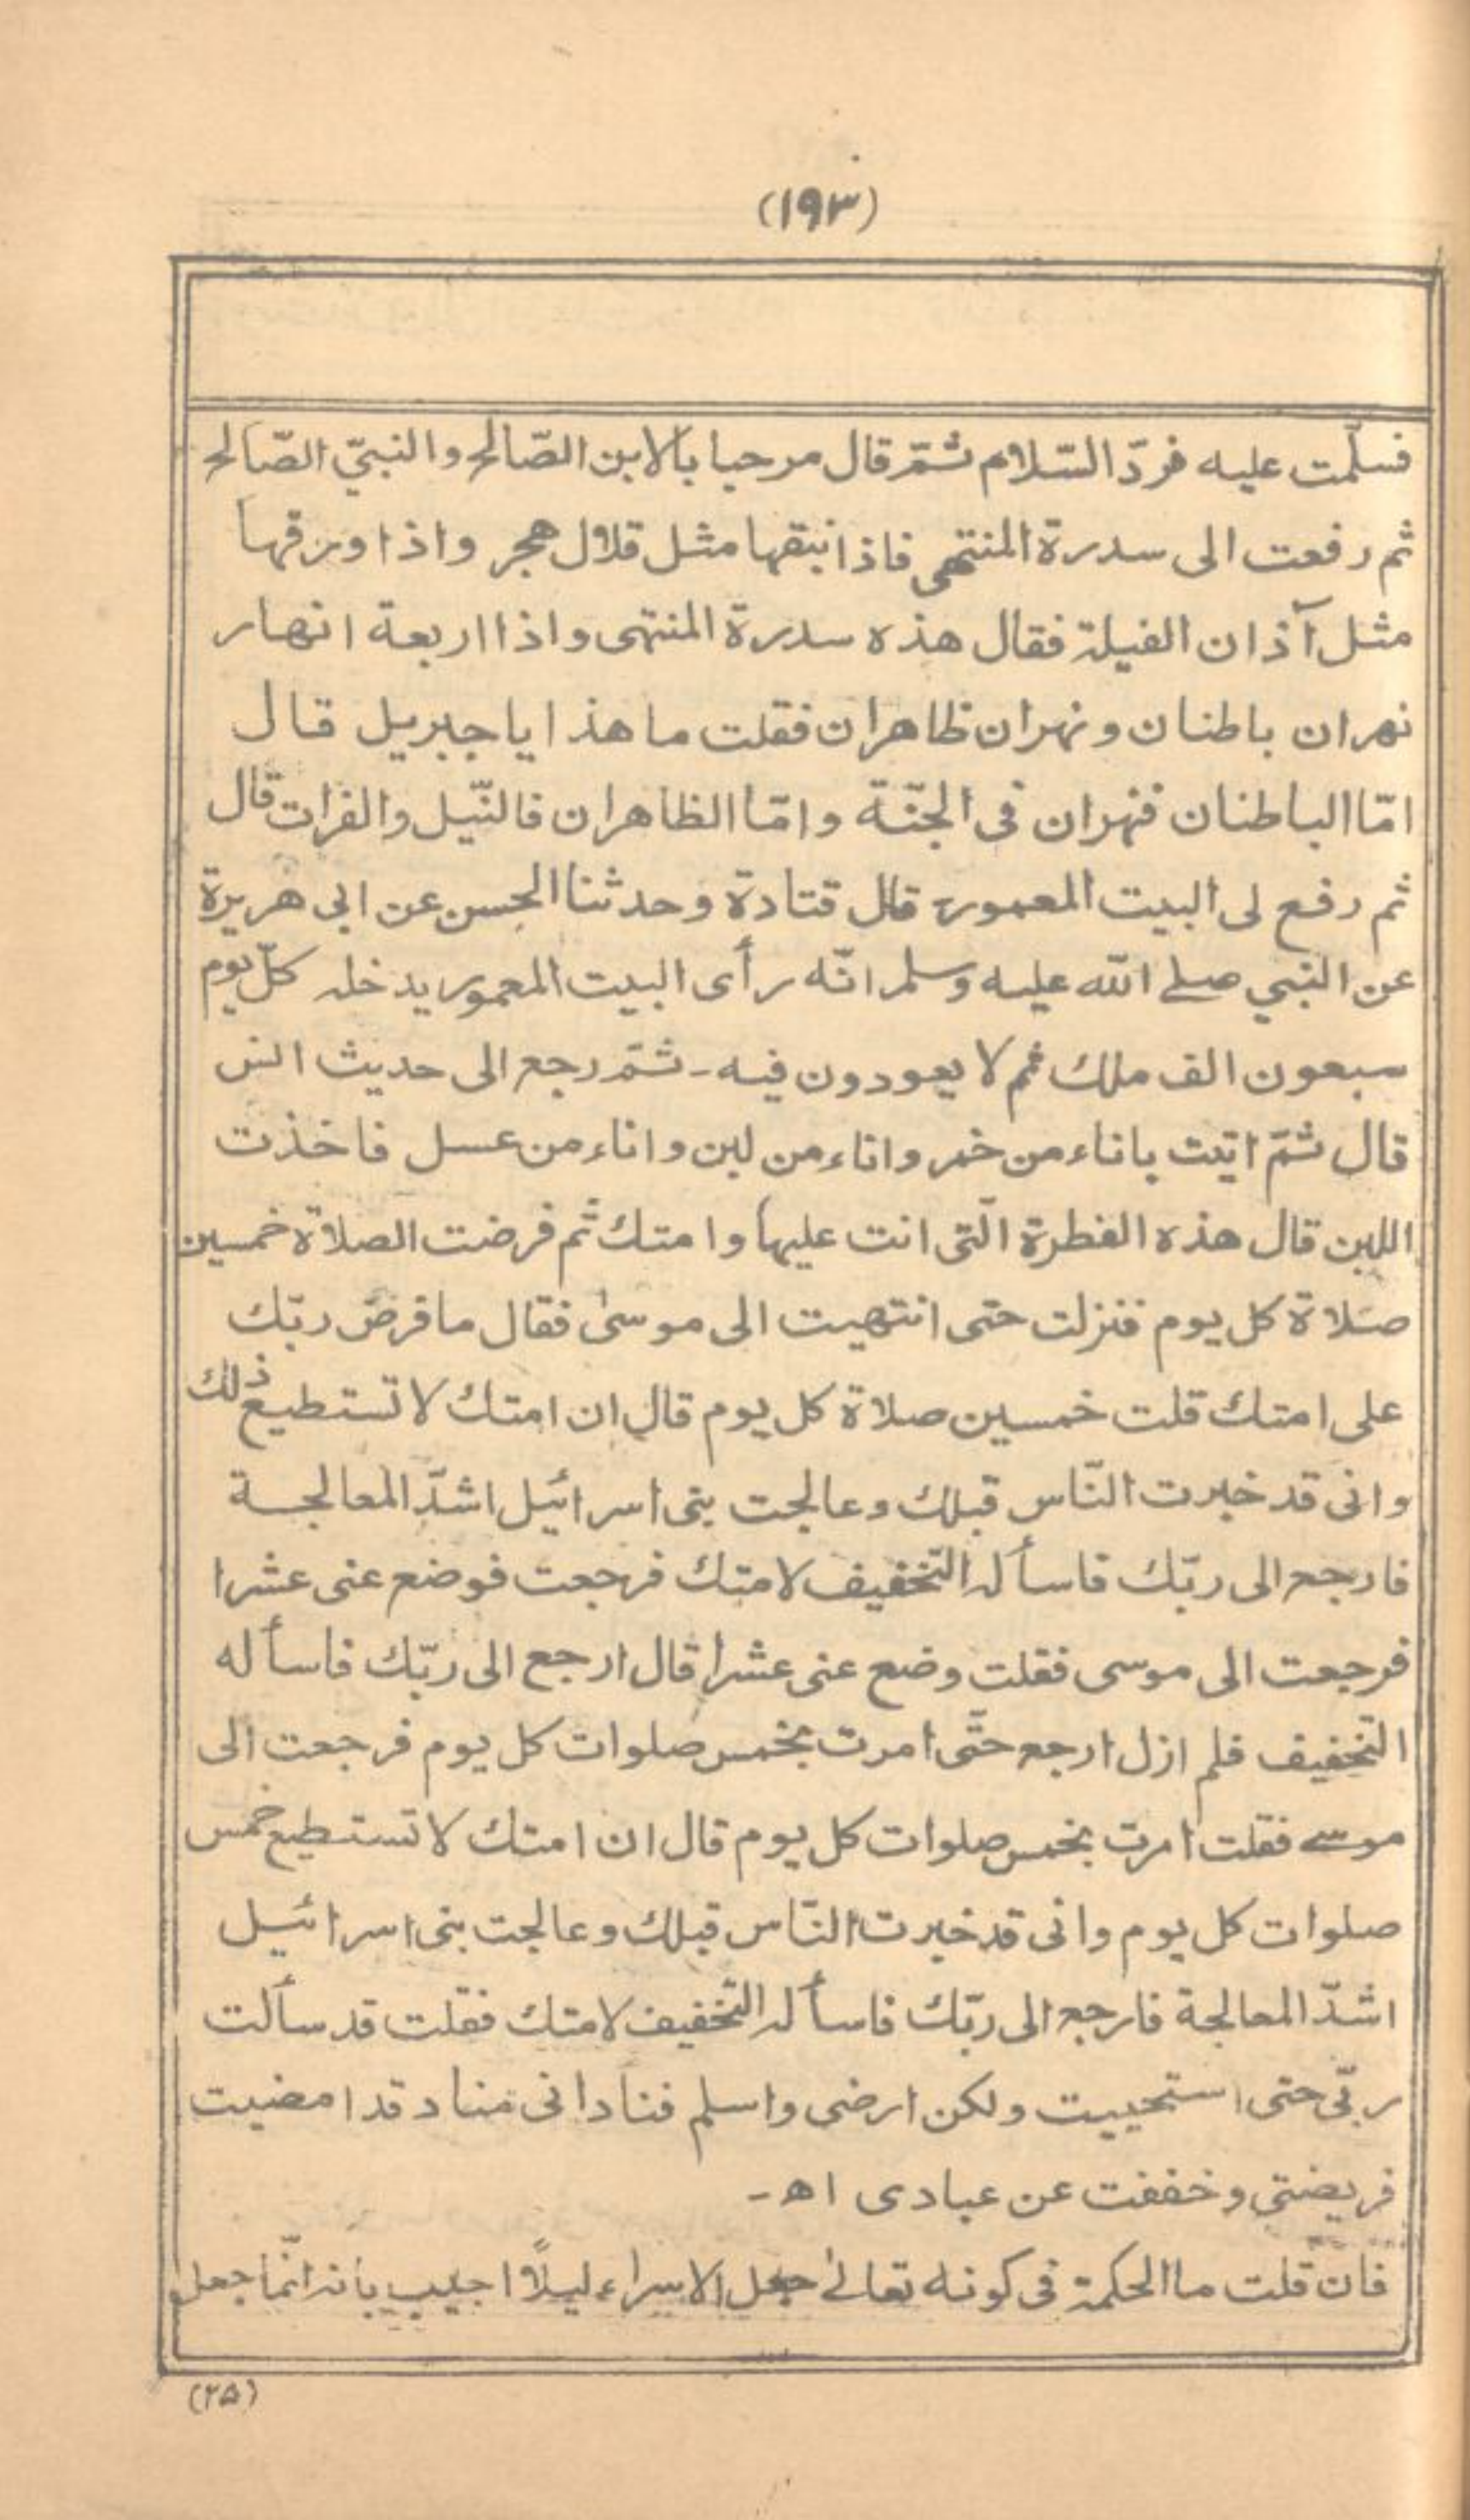 (١٩٣)
فسلّمت عليه فردّ السّلام ثمّ قال مرحبا بالابن الصّالح والنبيّ الصّالح
ثم رفعت الى سدرة المنتهى فاذا نبقها مثل قلال هجر واذا ورقها
مثل آذان الفيلة فقال هذه سدرة المنتهى واذا اربعة انهار
نهران باطنان ونهران ظاهران فقلت ما هذا يا جبريل قال
امّا الباطنان فنهران فى الجنّة وامّا الظاهران فالنّيل والفرات قال
ثم رفع لى البيت المعمور قال قتادة وحدثنا الحسن عن ابى هريرة
عن النبي صلى الله عليه وسلم انّه رأى البيت المعمور يدخله كلّ يوم
سبعون الف ملك ثم لا يعودون فيه ـ ثمّ رجع الى حديث انس
قال ثمّ اتيت باناء من خمر واناء من لبن واناء من عسل فاخذت
اللبن قال هذه الفطرة الّتى انت عليها وامتك ثم فرضت الصلاة خمسين
صلاة كل يوم فنزلت حتى انتهيت الى موسىٰ فقال ما فرض ربّك
على امتك قلت خمسين صلاة كل يوم قال ان امتك لا تستطيع ذلك
وانى قد خبرت النّاس قبلك وعالجت بنى اسرائيل اشدّ المعالجة
فارجع الى ربّك فاسأله التّخفيف لامتك فرجعت فوضع عنى عشرا
فرجعت الى موسى فقلت وضع عنى عشرا قال ارجع الى ربّك فاسأله
التّخفيف فلم ازل ارجع حتّى امرت بخمس صلوات كل يوم فرجعت الى
موسى فقلت امرت بخمس صلوات كل يوم قال ان امتك لا تستطيع خمس
صلوات كل يوم وانى قد خبرت النّاس قبلك وعالجت بنى اسرائيل
اشدّ المعالجة فارجع الى ربّك فاسأله التّخفيف لامتك فقلت قد سألت
ربّى حتى استحييت ولكن ارضى واسلم فنادانى مناد قد امضيت
فريضتى وخففت عن عبادى اهـ ـ
فان قلت ما الحكمة فى كونه تعالىٰ جعل الاسراء ليلًا اجيب بانه انّما جعل
(٢٥)